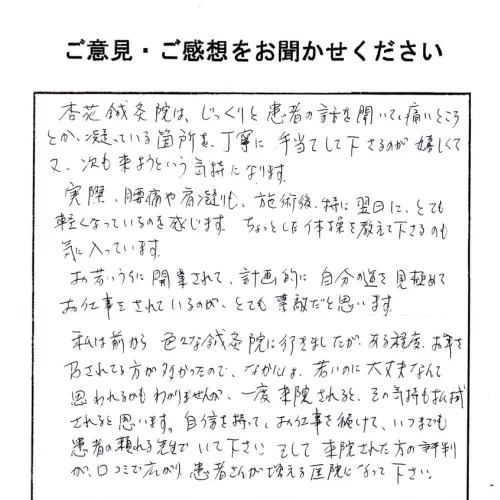 ご意見・ご感想をお聞かせください
杏花鍼灸院は、じっくりと患者の話を聞いて、痛いところ
とか、凝っている箇所を、丁寧に手当てして下さるのが嬉しくて
又、次も来ようという気持になります。
実際、腰痛や肩凝りも、施術後、特に翌日に、とても
軽くなっているのを感じます。ちょっとした体操を教えて下さるのも
気に入っています。
お若いうちに開業されて、計画的に自分の道を見極めて
お仕事をされているのが、とても素敵だと思います。
私は前から色々な鍼灸院に行きましたが、ある程度、お年を
召されてる方が多かったので、なかには、若いのに大丈夫なんて
思われるかもわかりませんが、一度来院されると、その気持も払拭
されると思います。自信を持って、お仕事を続けて、いつまでも
患者の頼れる先生でいて下さい。そして来院された方の評判
が、口コミで広がり、患者さんが増える医院になって下さい。